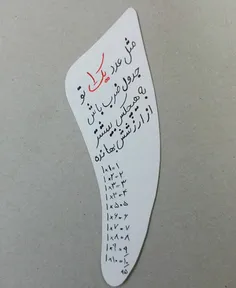 مثل عدد یک ۱ تو
جدول ضرب باش
به هیچکس بیشتر
از ارزشش بها نده
۱×۱=۱
۱×۲=۲
۱×۳=۳
۱×۴=۴
۱×۵=۵
۱×۶=۶
۱×۷=۷
۱×۸=۸
۱×۹=۹
۱×۱۰=۱۰